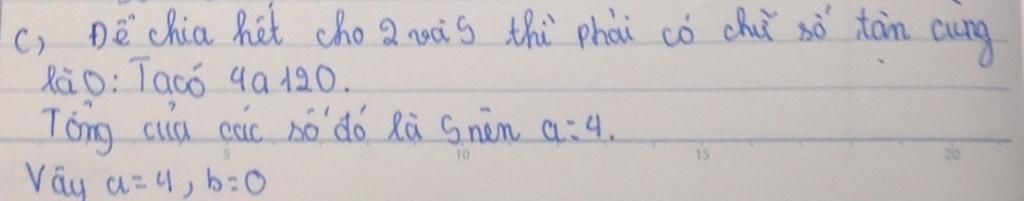 c, Để chia hết cho 2 và 5 thì phải có chữ số tận cùng
là 0: Ta có 4a120.
Tổng của các số đó là 5 nên a=4.
Vậy a=4, b=0
5 10 15 20